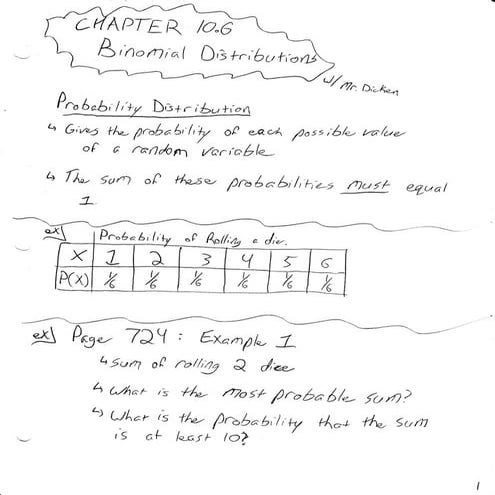 CHAPTER 10.6
Binomial Distributions
w/ Mr. Dicken
Probability Distribution
↳ Gives the probability of each possible value
of a random variable
↳ The sum of these probabilities must equal
1.
ex) Probability of Rolling a die.
X 1 2 3 4 5 6
P(X) 1/6 1/6 1/6 1/6 1/6 1/6
ex) Page 724: Example 1
↳ sum of rolling 2 dice
↳ What is the most probable sum?
↳ What is the probability that the sum
is at least 10?
1